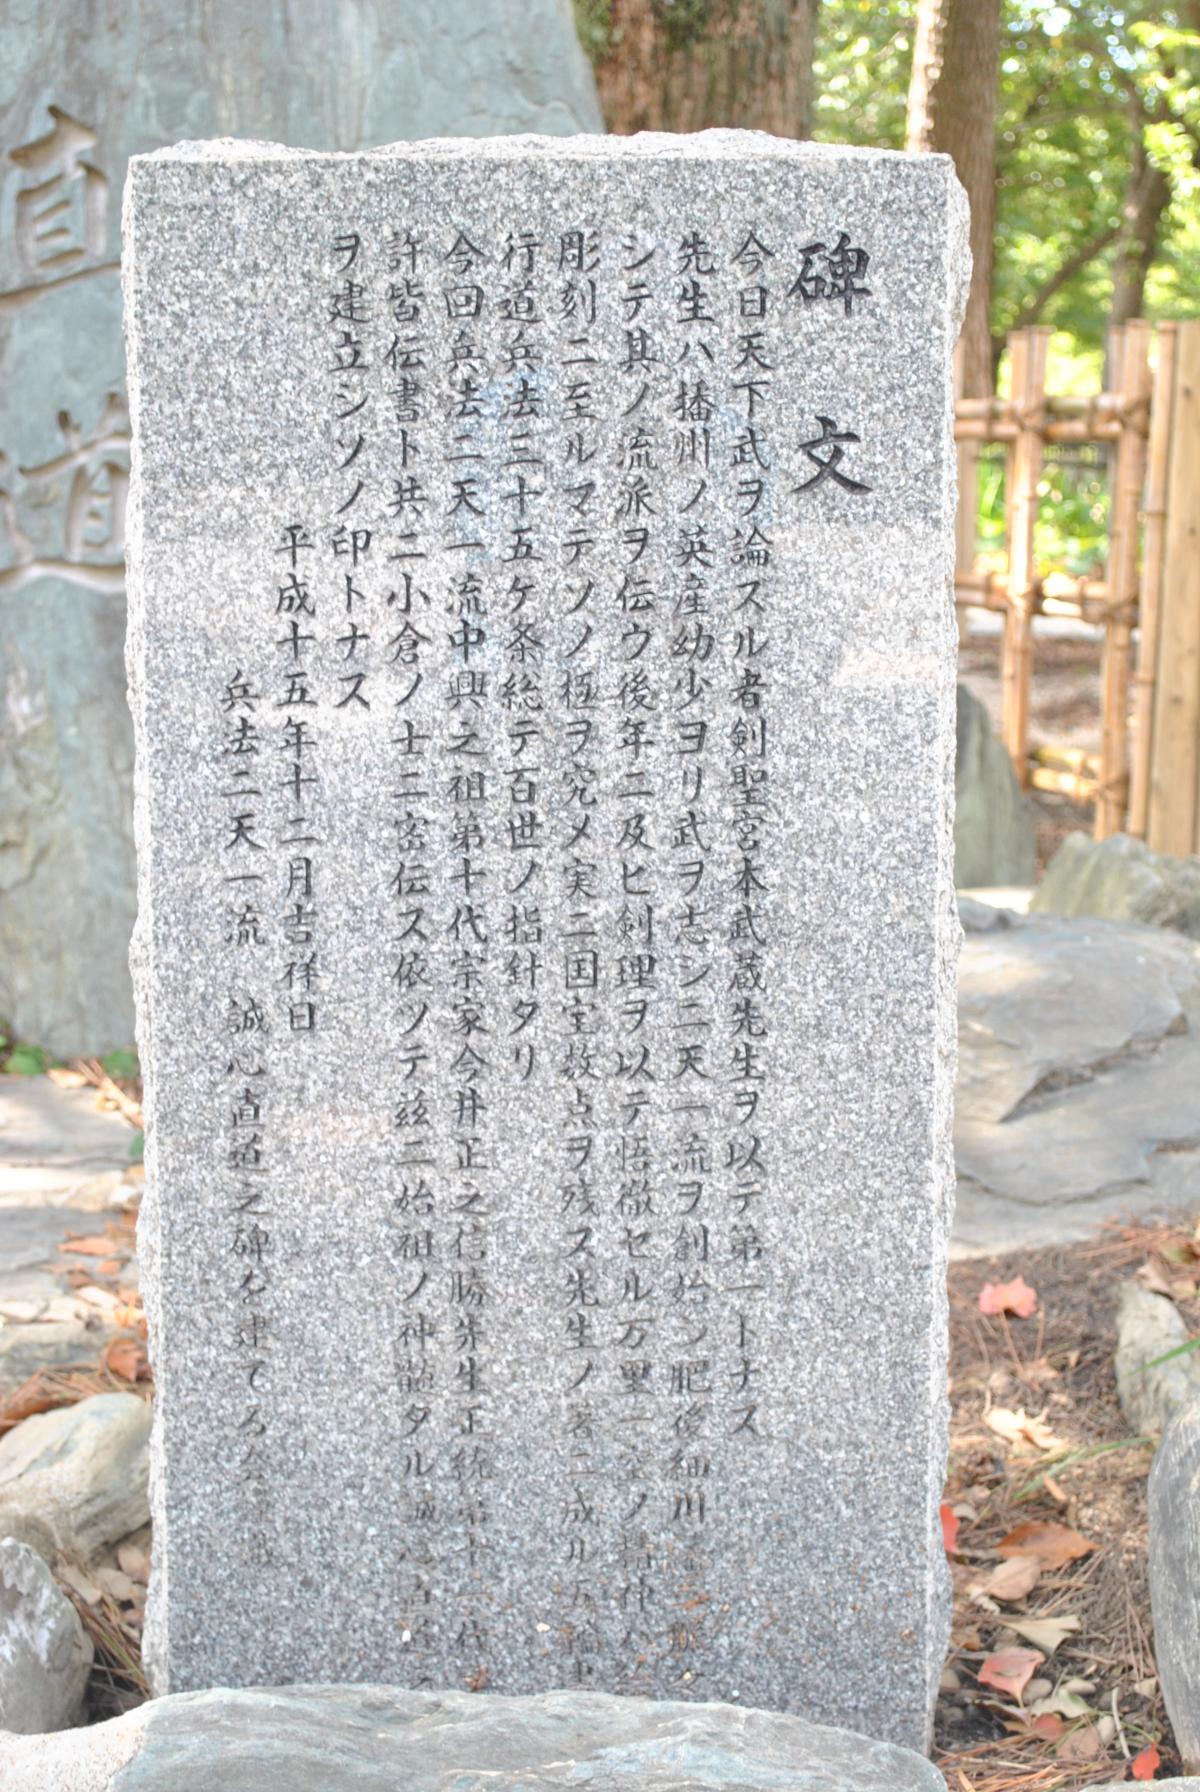 碑文
今日天下武ヲ論スル者剣聖宮本武蔵先生ヲ以テ第一トナス
先生ハ播州ノ英産幼少ヨリ武ヲ志シ二天一流ヲ創始シ肥後細川
シテ其ノ流派ヲ伝ウ後年ニ及ヒ剣理ヲ以テ悟徹セル万里一空ノ精神ハ絵
彫刻ニ至ルマテソノ極ヲ究メ実ニ国宝数点ヲ残ス先生ノ著ニ成ル五輪書
行道兵法三十五ケ条総テ百世ノ指針タリ
今回兵法二天一流中興之祖第十代宗家今井正之信勝先生正統第十一代
許皆伝書ト共ニ小倉ノ士ニ密伝ス依ツテ茲ニ始祖ノ神髄タル誠心直道之
ヲ建立シソノ印トナス
平成十五年十二月吉祥日
兵法二天一流 誠心直道之碑を建てる会
直道